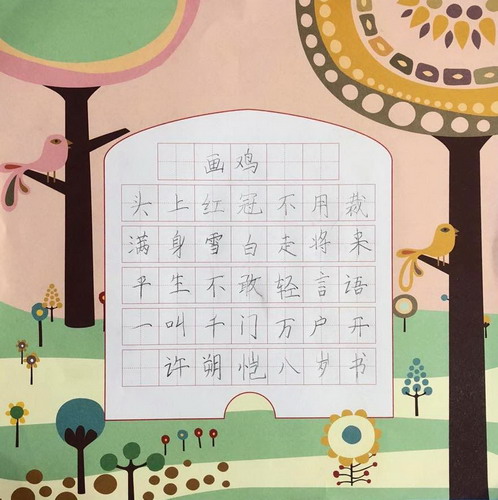 画鸡
头上红冠不用裁
满身雪白走将来
平生不敢轻言语
一叫千门万户开
许朔恺八岁书